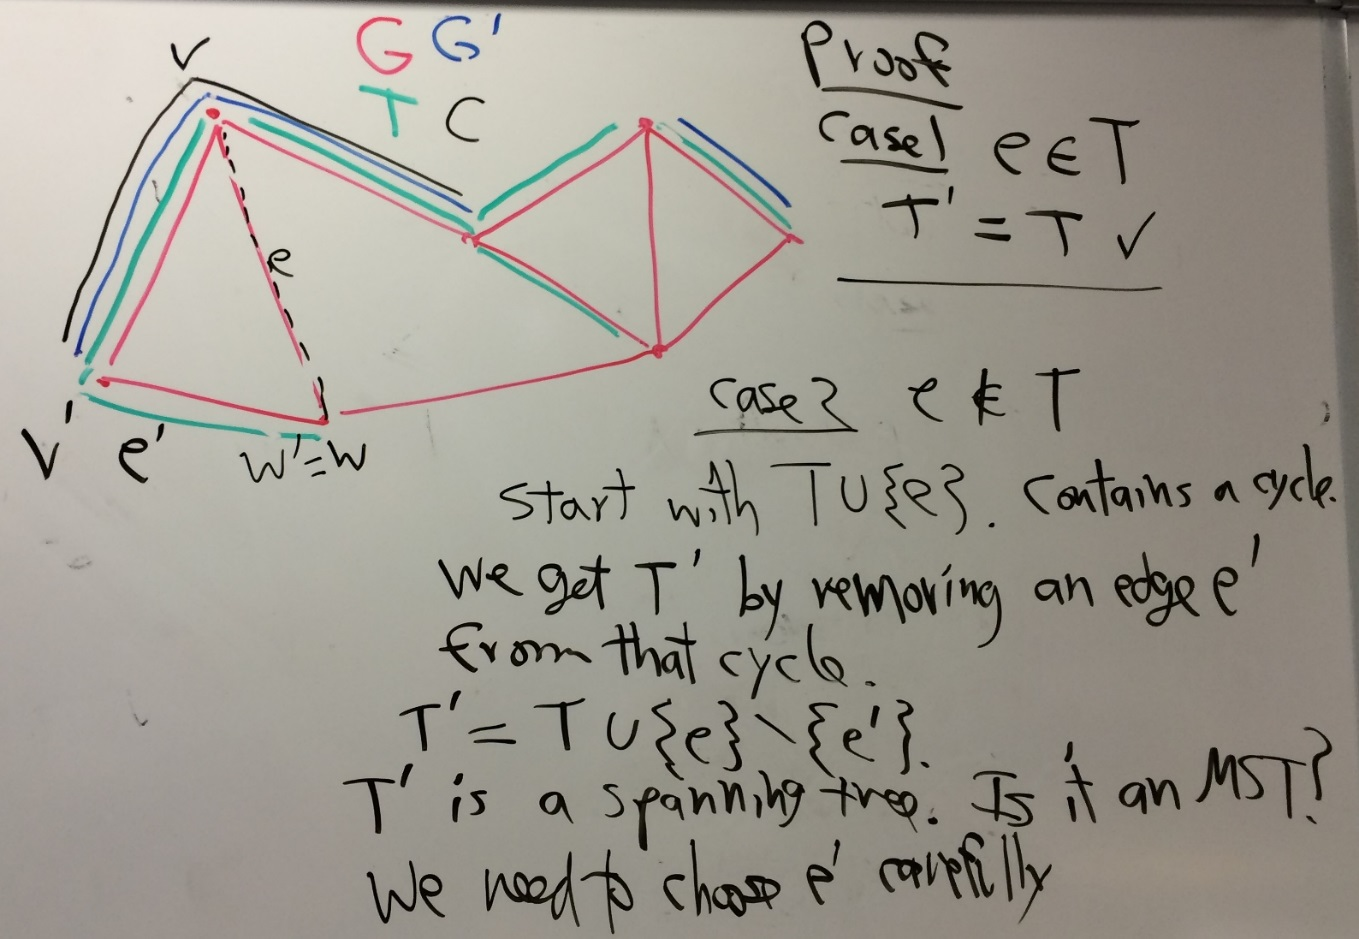 V
G G'
T C
e
V' e' W'=W
Proof
Case1 e∈T
T' = T ✓
Case2 e∉T
Start with T∪{e}. Contains a cycle.
We get T' by removing an edge e'
from that cycle.
T' = T∪{e}\{e'}.
T' is a spanning tree. Is it an MST?
We need to choose e' carefully